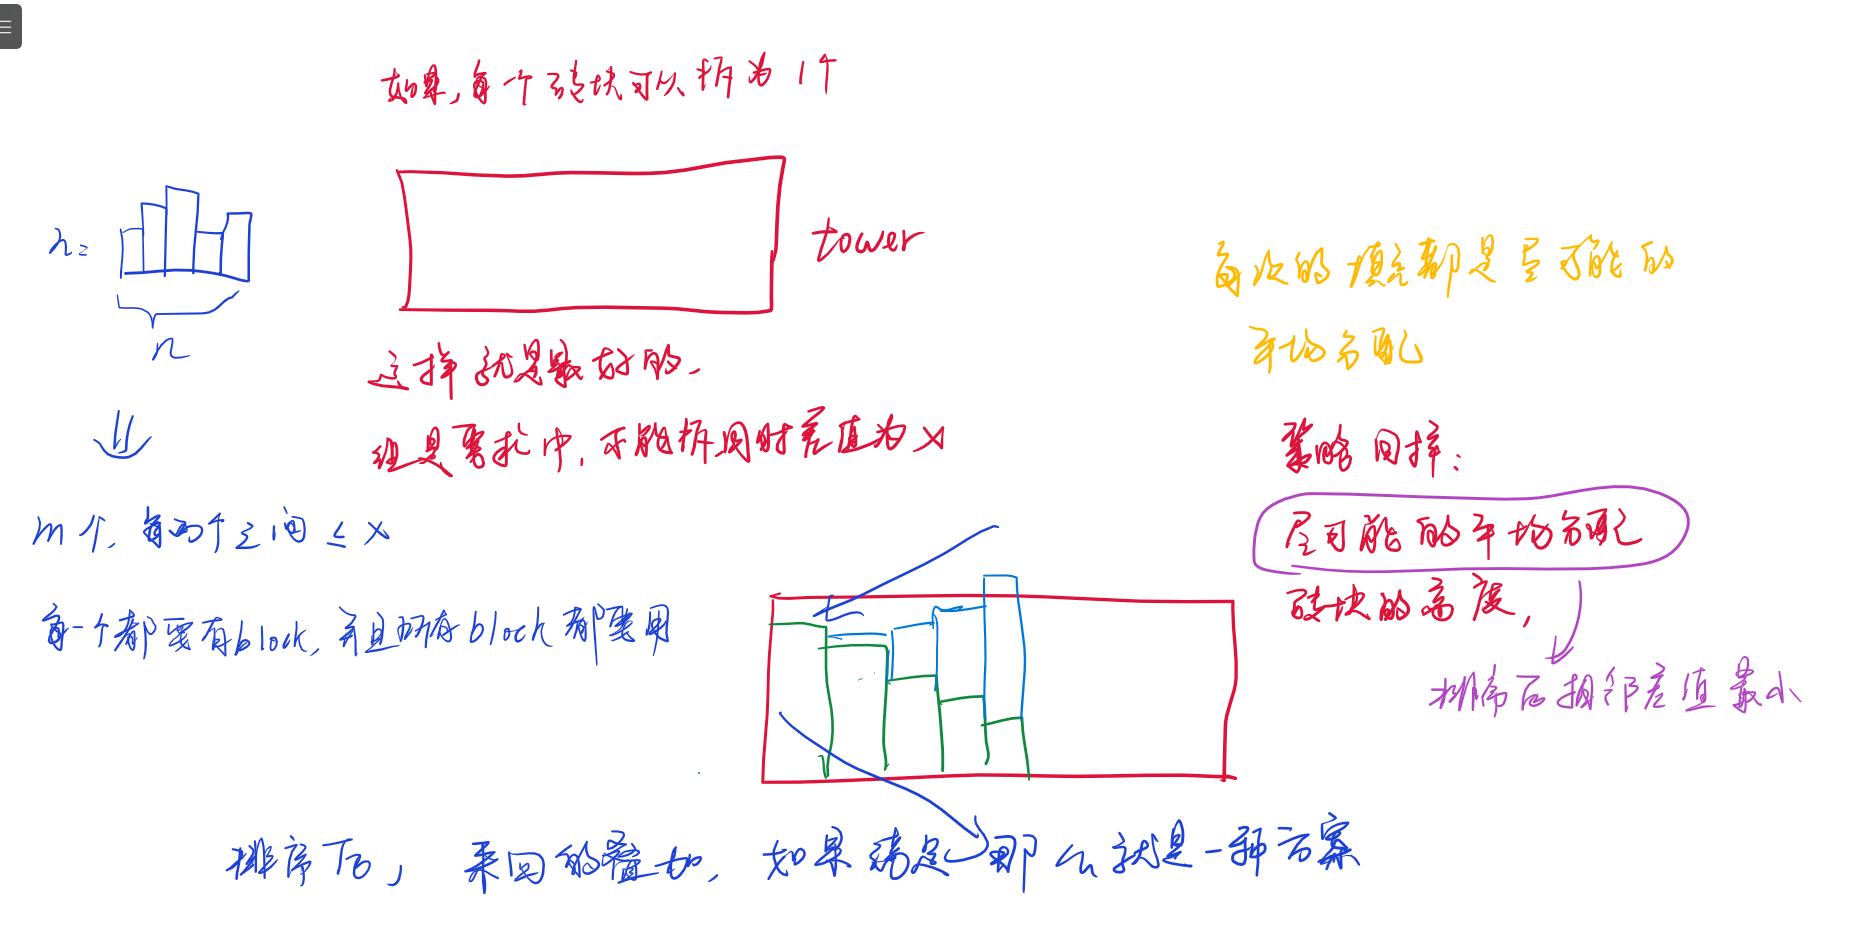 如果,每个砖块可以拆为1个
n=
n
tower
这样就是最好的.
但是要求中,不能拆同时差值为x
m个,每两个之间≤x
每一个都要有block,并且所有block都要用
每次的填充都是尽可能的
平均分配
策略回择:
尽可能的平均分配
砖块的高度,
排序后相邻差值最小
排序下后,来回的叠加,如果满足,那么就是一种方案